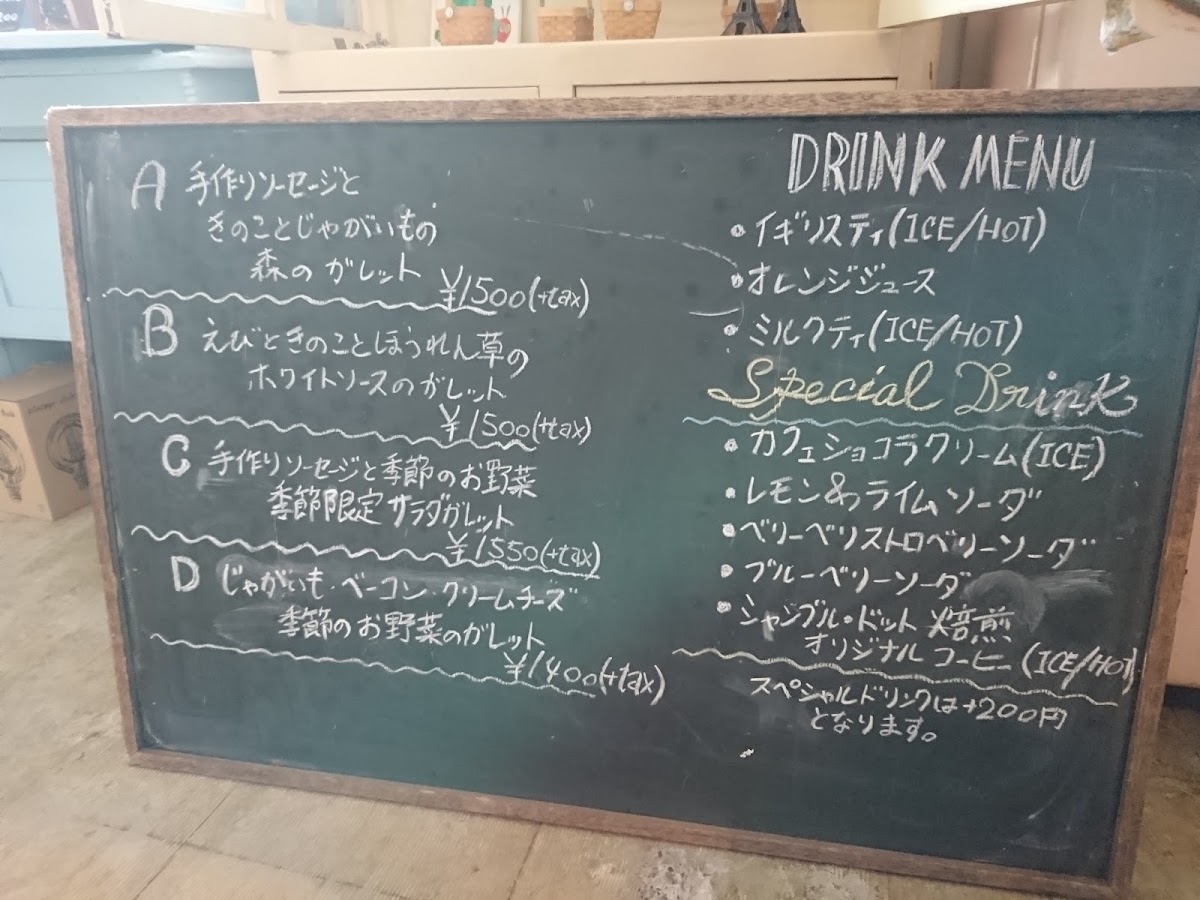 A 手作りソーセージと
きのことじゃがいもの
森のガレット
¥1500(+tax)
B えびときのことほうれん草の
ホワイトソースのガレット
¥1500(+tax)
C 手作りソーセージと季節のお野菜
季節限定サラダガレット
¥1550(+tax)
D じゃがいも・ベーコン・クリームチーズ
季節のお野菜のガレット
¥1400(+tax)
DRINK MENU
・イギリスティ(ICE/HOT)
・オレンジジュース
・ミルクティ(ICE/HOT)
Special Drink
・カフェショコラクリーム(ICE)
・レモン&ライムソーダ
・ベリーベリストロベリーソーダ
・ブルーベリーソーダ
・シャンブル・ドット 焙煎
オリジナルコーヒー(ICE/HOT)
スペシャルドリンクは+200円
となります。